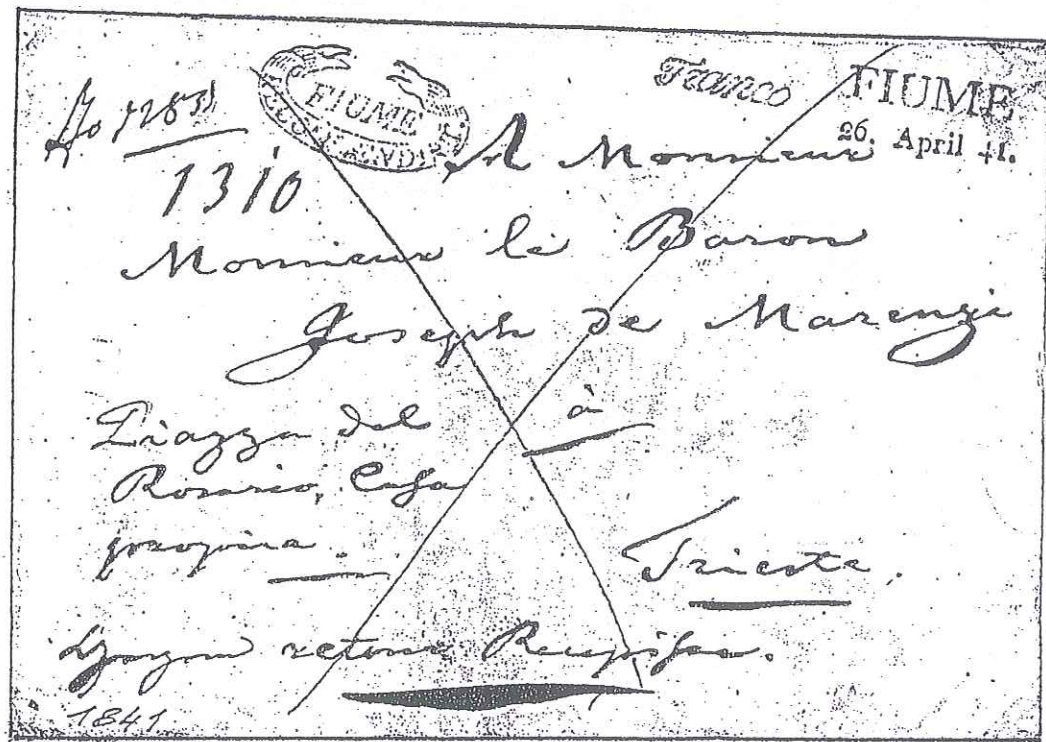 No 1285
1310
FIUME
RECOMMANDIRT
Franco
FIUME
26. April 41.
A Monsieur
Monsieur le Baron
Joseph de Marenzi
à
Piazza del
Rosario, Casa
propria.
Trieste.
retour Recepisse.
1841